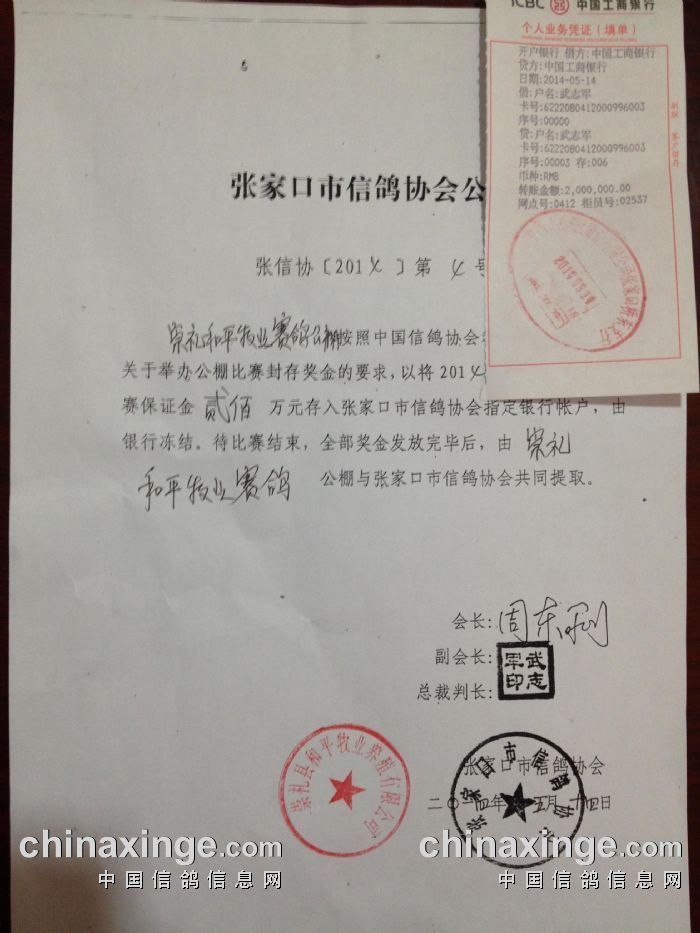 ICBC 中国工商银行
个人业务凭证(填单)
开户银行 借方:中国工商银行
贷方:中国工商银行
日期:2014-05-14
借:户名:武志军
卡号:6222080412000996003
序号:00000
贷:户名:武志军
卡号:6222080412000996003
序号:00003 存:006
币种:RMB
转账金额:2,000,000.00
网点号:0412 柜员号:02537
张家口市信鸽协会公
张信协〔2014〕第 4 号
崇礼和平牧业赛鸽公棚按照中国信鸽协会
关于举办公棚比赛封存奖金的要求,以将 2014
赛保证金 贰佰 万元存入张家口市信鸽协会指定银行帐户,由
银行冻结。待比赛结束,全部奖金发放完毕后,由 崇礼
和平牧业赛鸽 公棚与张家口市信鸽协会共同提取。
会长:周东刚
副会长:
武志军印
总裁判长:
崇礼县和平牧业养殖有限公司
张家口市信鸽协会
张家口市信鸽协会
二〇一四年五月十四日
chinaxinge.com
中国信鸽信息网
chinaxinge.com
中国信鸽信息网